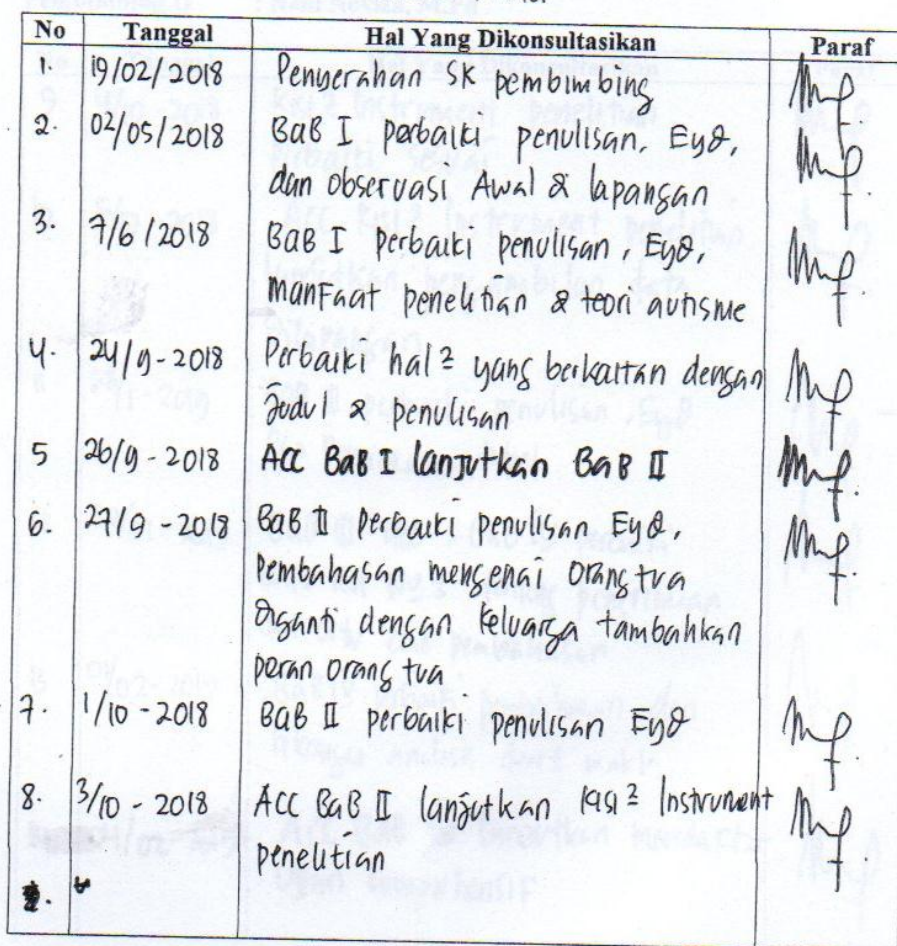 No Tanggal Hal Yang Dikonsultasikan Paraf
1. 19/02/2018 Penyerahan SK pembimbing
2. 02/05/2018 BaB I perbaiki penulisan, EyD,
dan observasi Awal & lapangan
3. 7/6/2018 BaB I perbaiki penulisan, EyD,
manfaat penelitian & teori autisme
4. 24/9-2018 Perbaiki hal² yang berkaitan dengan
judul & penulisan
5 26/9-2018 Acc BaB I lanjutkan BaB II
6. 27/9-2018 BaB II perbaiki penulisan EyD,
pembahasan mengenai orang tua
diganti dengan keluarga tambahkan
peran orang tua
7. 1/10-2018 BaB II perbaiki penulisan EyD
8. 3/10-2018 Acc BaB II lanjutkan kisi² Instrument
penelitian